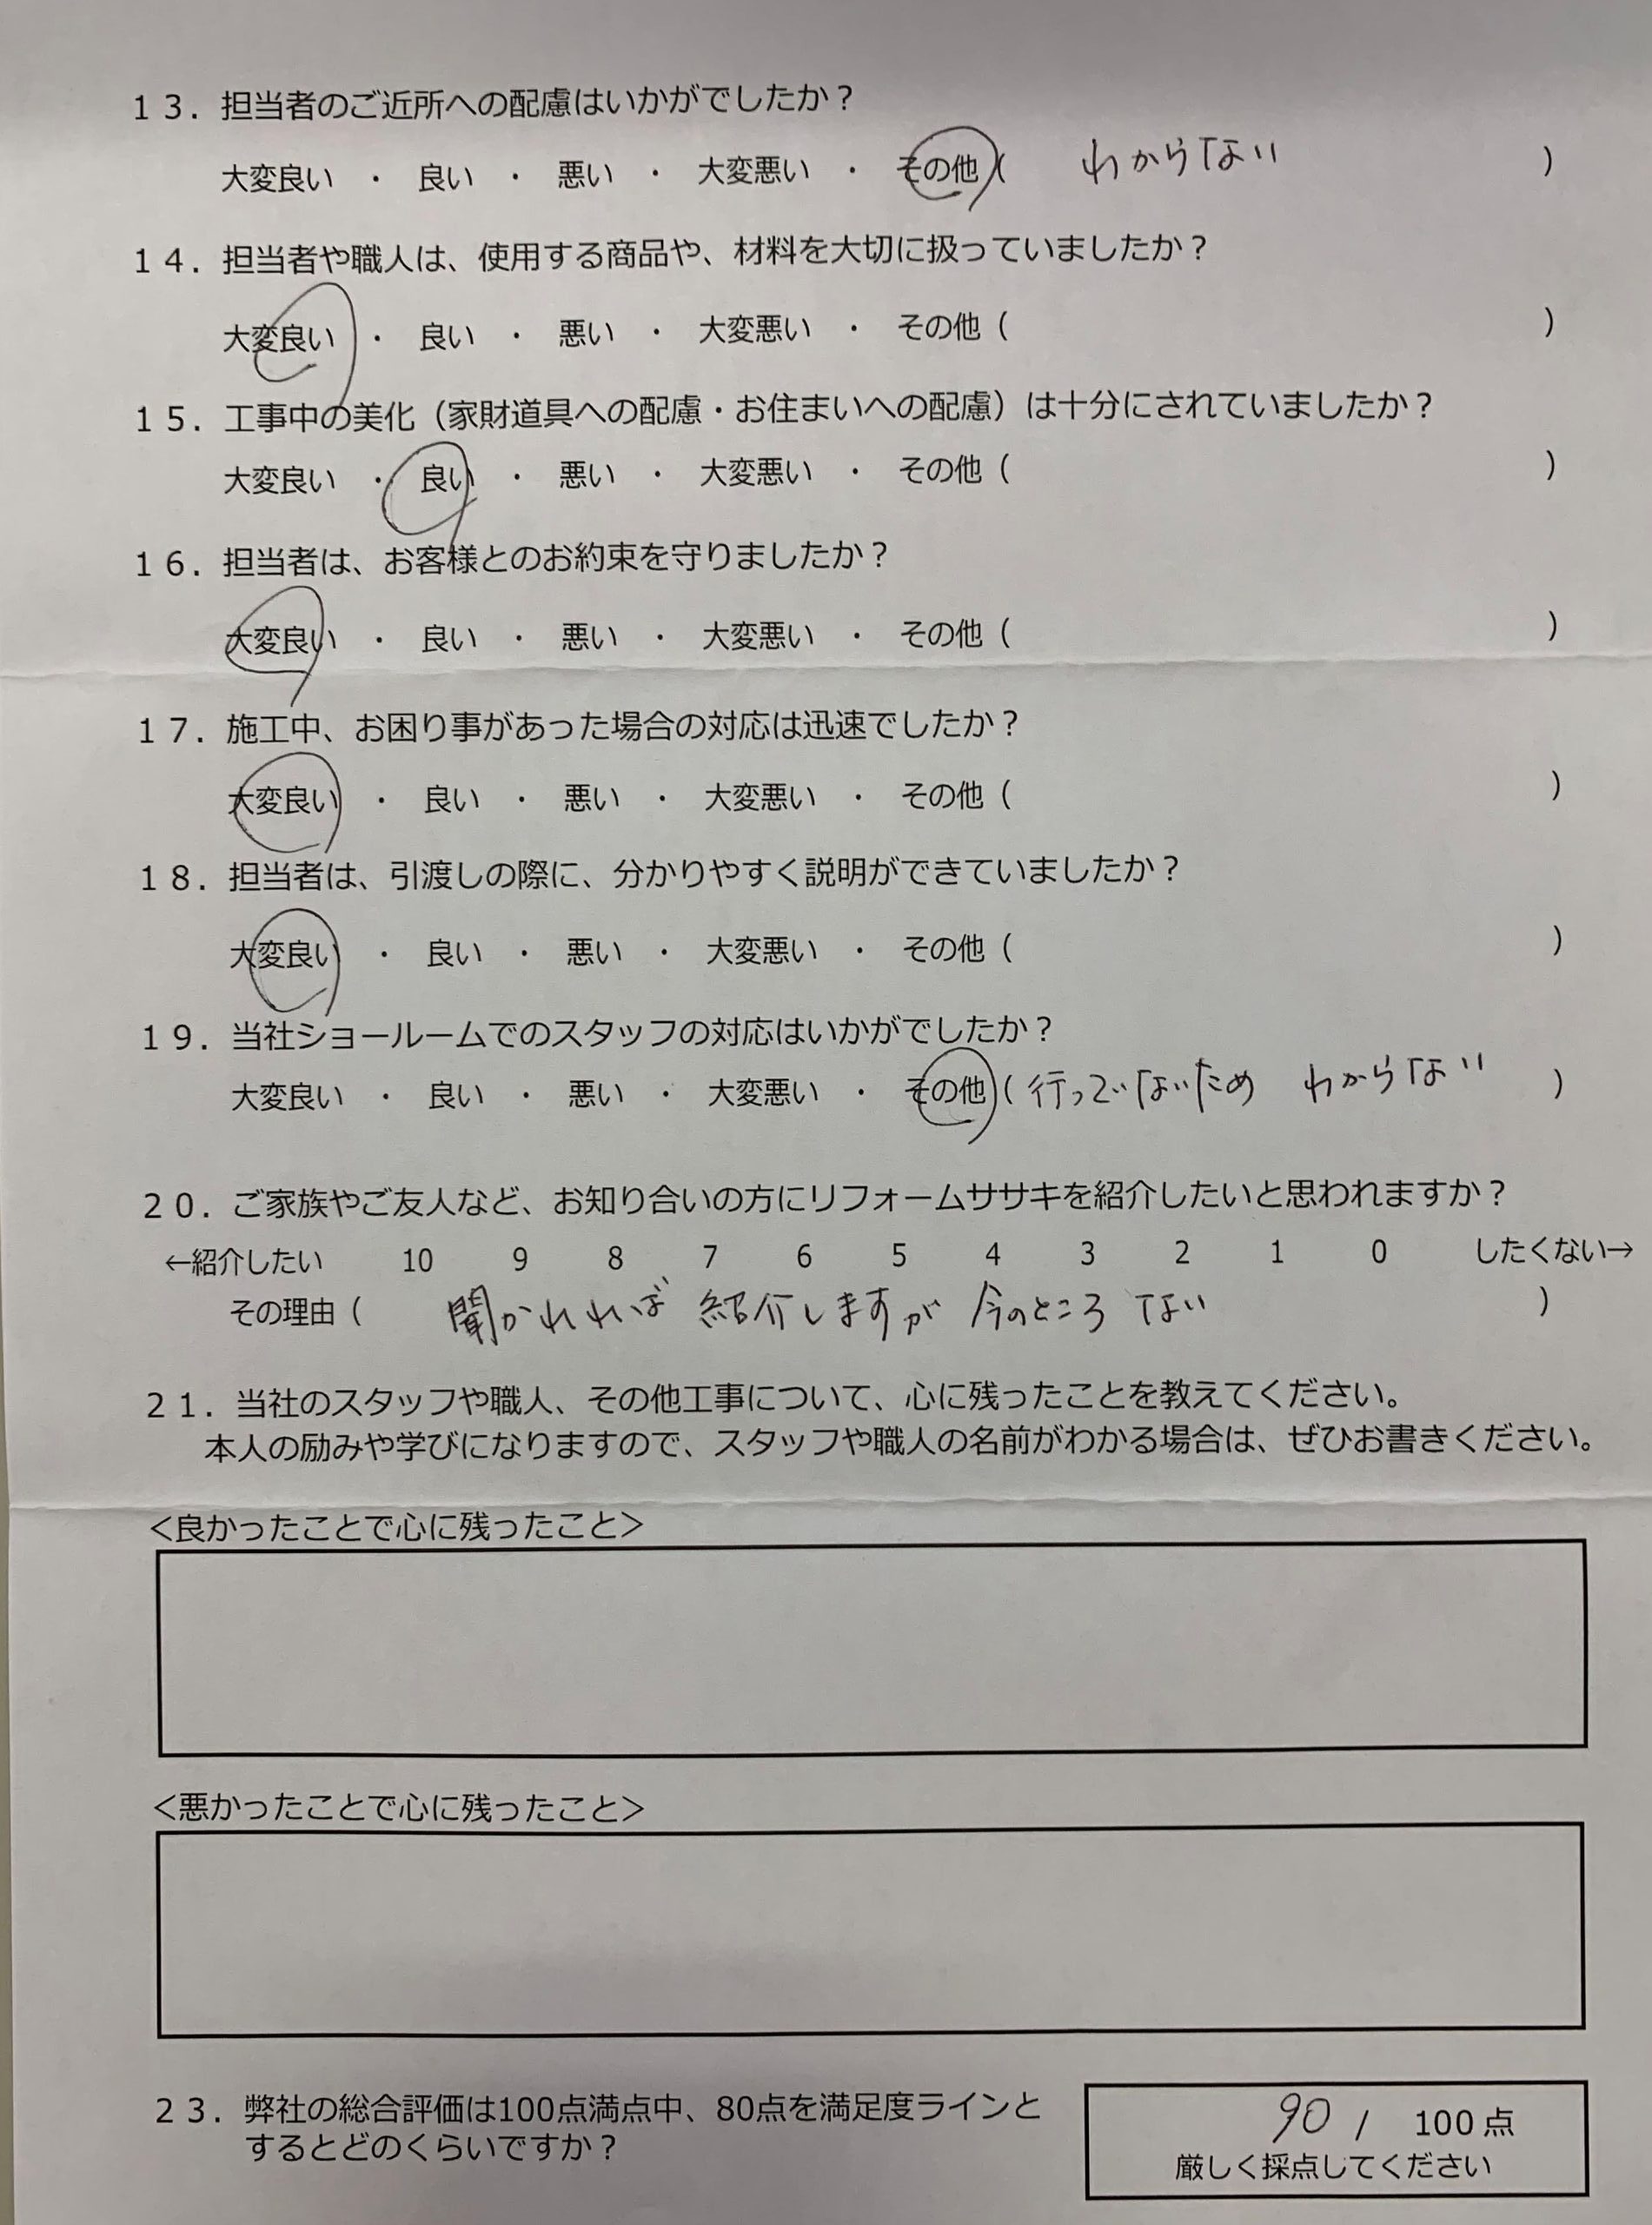 １３．担当者のご近所への配慮はいかがでしたか？
大変良い ・ 良い ・ 悪い ・ 大変悪い ・ その他（ わからない ）
１４．担当者や職人は、使用する商品や、材料を大切に扱っていましたか？
大変良い ・ 良い ・ 悪い ・ 大変悪い ・ その他（ ）
１５．工事中の美化（家財道具への配慮・お住まいへの配慮）は十分にされていましたか？
大変良い ・ 良い ・ 悪い ・ 大変悪い ・ その他（ ）
１６．担当者は、お客様とのお約束を守りましたか？
大変良い ・ 良い ・ 悪い ・ 大変悪い ・ その他（ ）
１７．施工中、お困り事があった場合の対応は迅速でしたか？
大変良い ・ 良い ・ 悪い ・ 大変悪い ・ その他（ ）
１８．担当者は、引渡しの際に、分かりやすく説明ができていましたか？
大変良い ・ 良い ・ 悪い ・ 大変悪い ・ その他（ ）
１９．当社ショールームでのスタッフの対応はいかがでしたか？
大変良い ・ 良い ・ 悪い ・ 大変悪い ・ その他（ 行っていないため わからない ）
２０．ご家族やご友人など、お知り合いの方にリフォームササキを紹介したいと思われますか？
←紹介したい 10 9 8 7 6 5 4 3 2 1 0 したくない→
その理由（ 聞かれれば 紹介しますが 今のところ ない ）
２１．当社のスタッフや職人、その他工事について、心に残ったことを教えてください。
本人の励みや学びになりますので、スタッフや職人の名前がわかる場合は、ぜひお書きください。
＜良かったことで心に残ったこと＞
＜悪かったことで心に残ったこと＞
２３．弊社の総合評価は100点満点中、80点を満足度ラインと
するとどのくらいですか？
90 / 100 点
厳しく採点してください